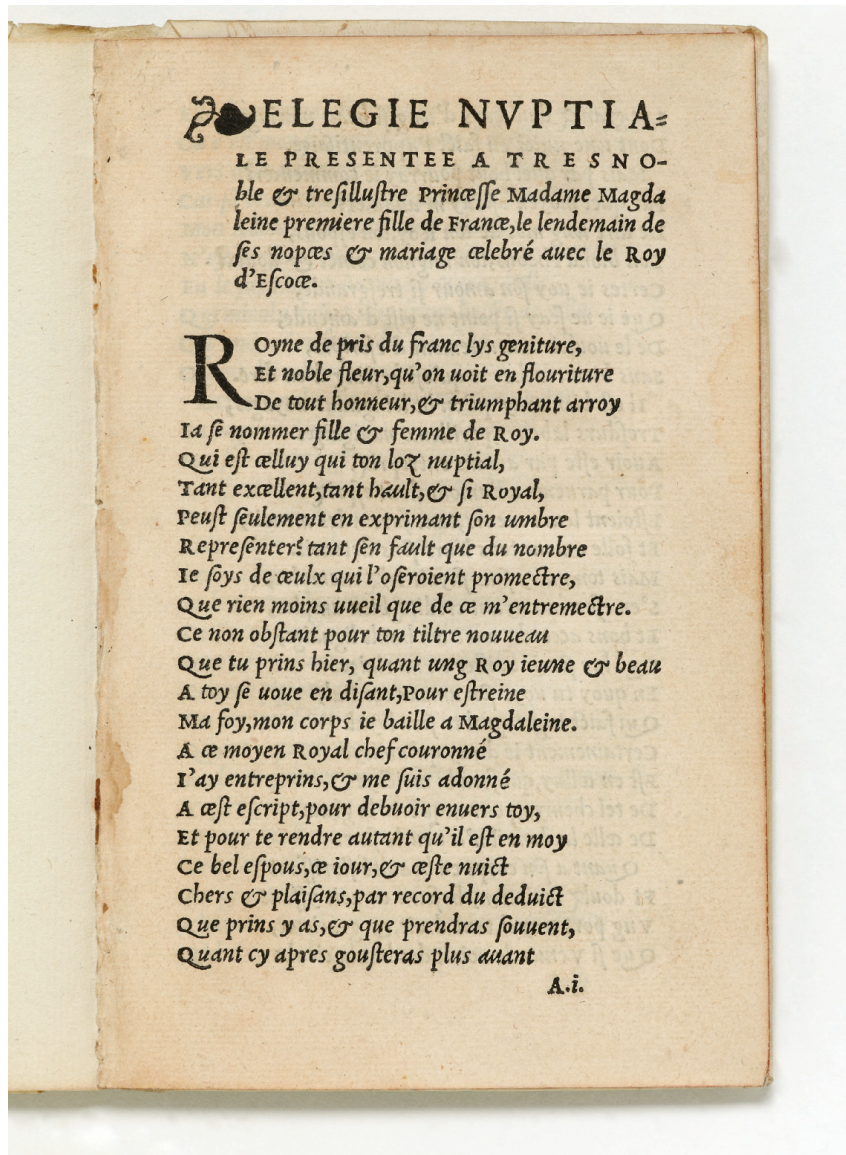 ELEGIE NVPTIA=
LE PRESENTEE A TRESNO-
ble & treſilluſtre Princeſſe Madame Magda
leine premiere fille de France,le lendemain de
ſes nopces & mariage celebré auec le Roy
d'Eſcoce.
ROyne de pris du franc lys geniture,
Et noble fleur,qu'on uoit en flouriture
De tout honneur,& triumphant arroy
Ia ſe nommer fille & femme de Roy.
Qui eſt celluy qui ton loz nuptial,
Tant excellent,tant hault,& ſi Royal,
Peuſt ſeulement en exprimant ſon umbre
Repreſenter? tant ſen fault que du nombre
Ie ſoys de ceulx qui l'oſeroient promectre,
Que rien moins uueil que de ce m'entremectre.
Ce non obſtant pour ton tiltre nouueau
Que tu prins hier, quant ung Roy ieune & beau
A toy ſe uoue en diſant,Pour eſtreine
Ma foy,mon corps ie baille a Magdaleine.
A ce moyen Royal chef couronné
I'ay entreprins,& me ſuis adonné
A ceſt eſcript,pour debuoir enuers toy,
Et pour te rendre autant qu'il eſt en moy
Ce bel eſpous,ce iour,& ceſte nuict
Chers & plaiſans,par record du deduict
Que prins y as,& que prendras ſouuent,
Quant cy apres gouſteras plus auant
A.i.